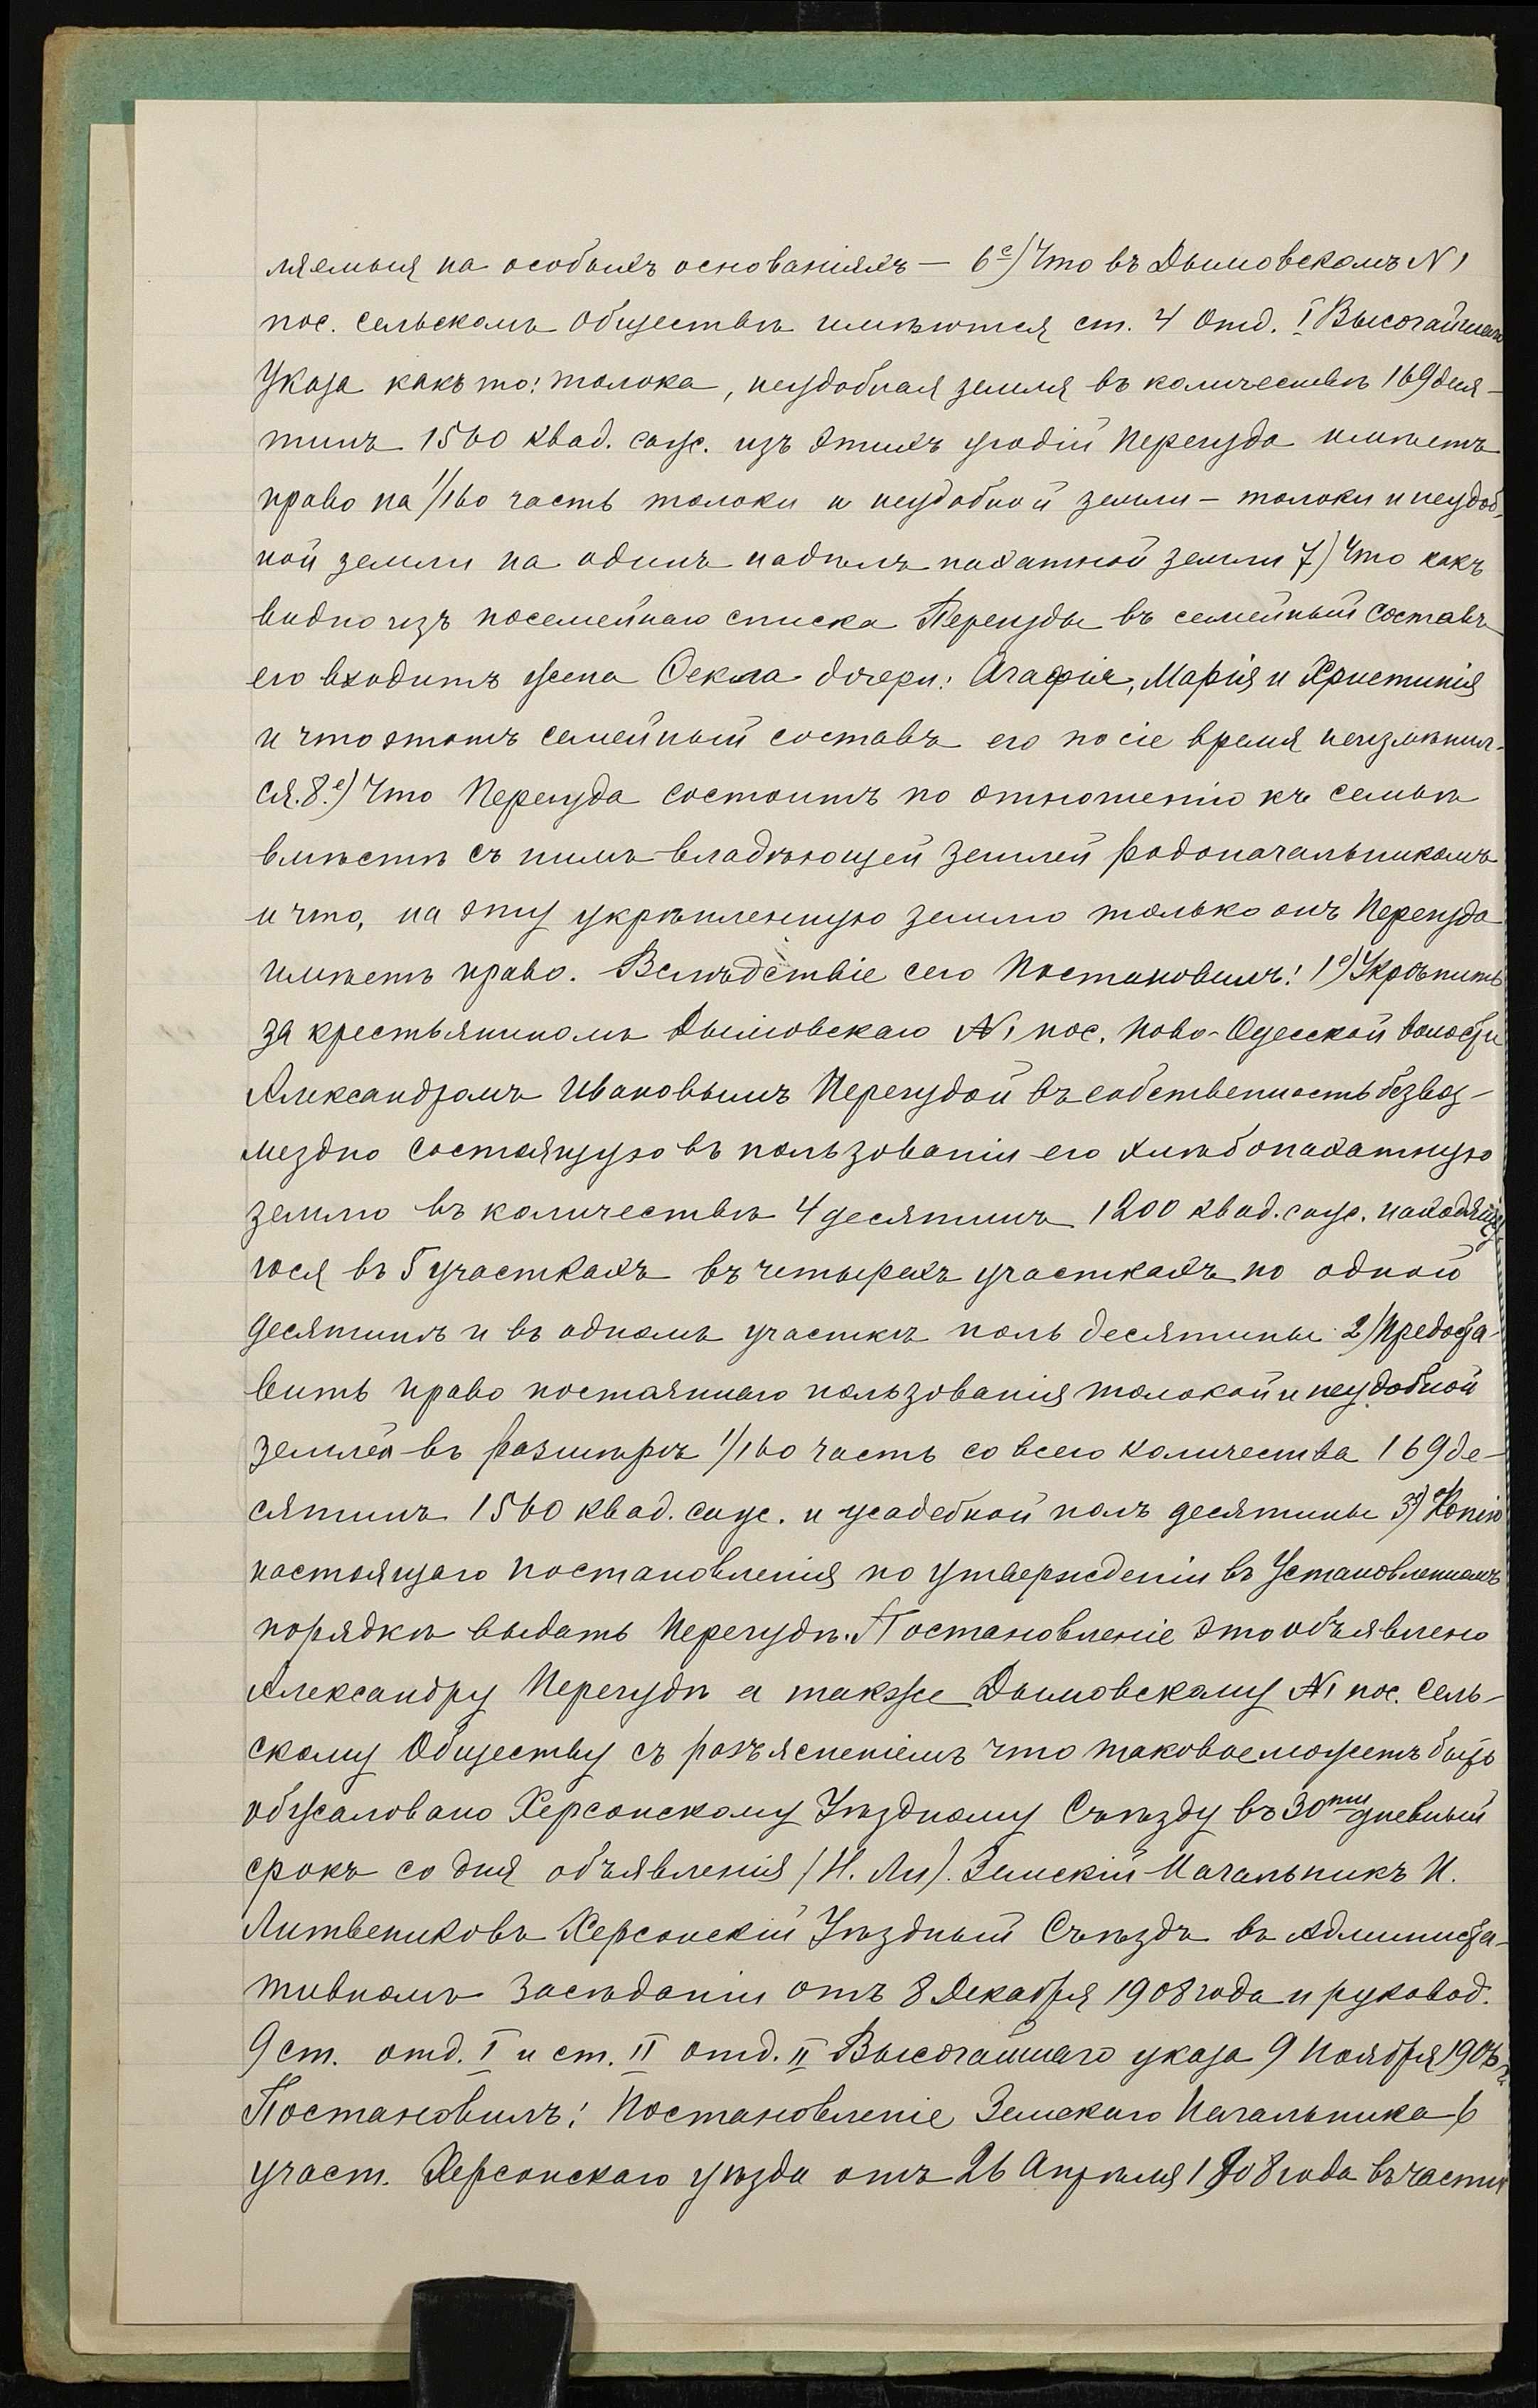 ляемыя на особыхъ основаніяхъ — 6е) Что въ Дымовскомъ №1
пос. сельскомъ обществѣ имѣются ст. 4 Отд. I Высочайшаго
Указа какъ то: толока, неудобная земля въ количествѣ 169 деся-
тинъ 1560 квад. саж. изъ этихъ угодій Перегуда имѣетъ
право на 1/160 часть толоки и неудобной земли — толоки и неудоб-
ной земли на одинъ надѣлъ пахатной земли 7) Что какъ
видно изъ посемейнаго списка Перегуды въ семейный составъ
его входитъ жена Ѳекла дочери: Агафія, Марія и Христинія
и что этотъ семейный составъ его по сіе время неизмѣнил-
ся. 8.е) Что Перегуда состоитъ по отношенію къ семьѣ
вмѣстѣ съ нимъ владѣющей землей родоначальникомъ
и что, на эту укрѣпленную землю только онъ Перегуда
имѣетъ право. Вслѣдствіе сего Постановилъ: 1е) Укрѣпить
за крестьяниномъ Дымовскаго №1 пос. Ново-Одесской волости
Александромъ Ивановымъ Перегудой въ собственность безвоз-
мездно состоящую въ пользованіи его хлѣбопахатную
землю въ количествѣ 4 десятинъ 1200 квад. саж. находящу
юся въ 5 участкахъ въ четырехъ участкахъ по одной
десятинѣ и въ одномъ участкѣ полъ десятины 2) Предоста-
вить право постояннаго пользованія толокой и неудобной
землей въ размѣрѣ 1/160 часть со всего количества 169 де-
сятинъ 1560 квад. саж. и усадебной полъ десятины 3) Копію
настоящаго постановленія по утвержденіи въ Установленномъ
порядкѣ выдать Перегудѣ. Постановленіе это объявлено
Александру Перегудѣ а также Дымовскому №1 пос. Сель-
скому Обществу съ разъясненіемъ что таковое можетъ быть
обжаловано Херсонскому Уѣздному Съѣзду въ 30ти дневный
срокъ со дня объявленія (Н. Ли). Земскій Начальникъ И.
Литвениковъ Херсонскій Уѣздный Съѣздъ въ Админист
ативномъ Засѣданіи отъ 8 Декабря 1908 года и руковод.
9 ст. отд. I и ст. II отд. II Высочайшаго указа 9 Ноября 1906 г.
Постановилъ: Постановленіе Земскаго Начальника 6
участ. Херсонскаго уѣзда отъ 26 Апрѣля 1908 года въ части